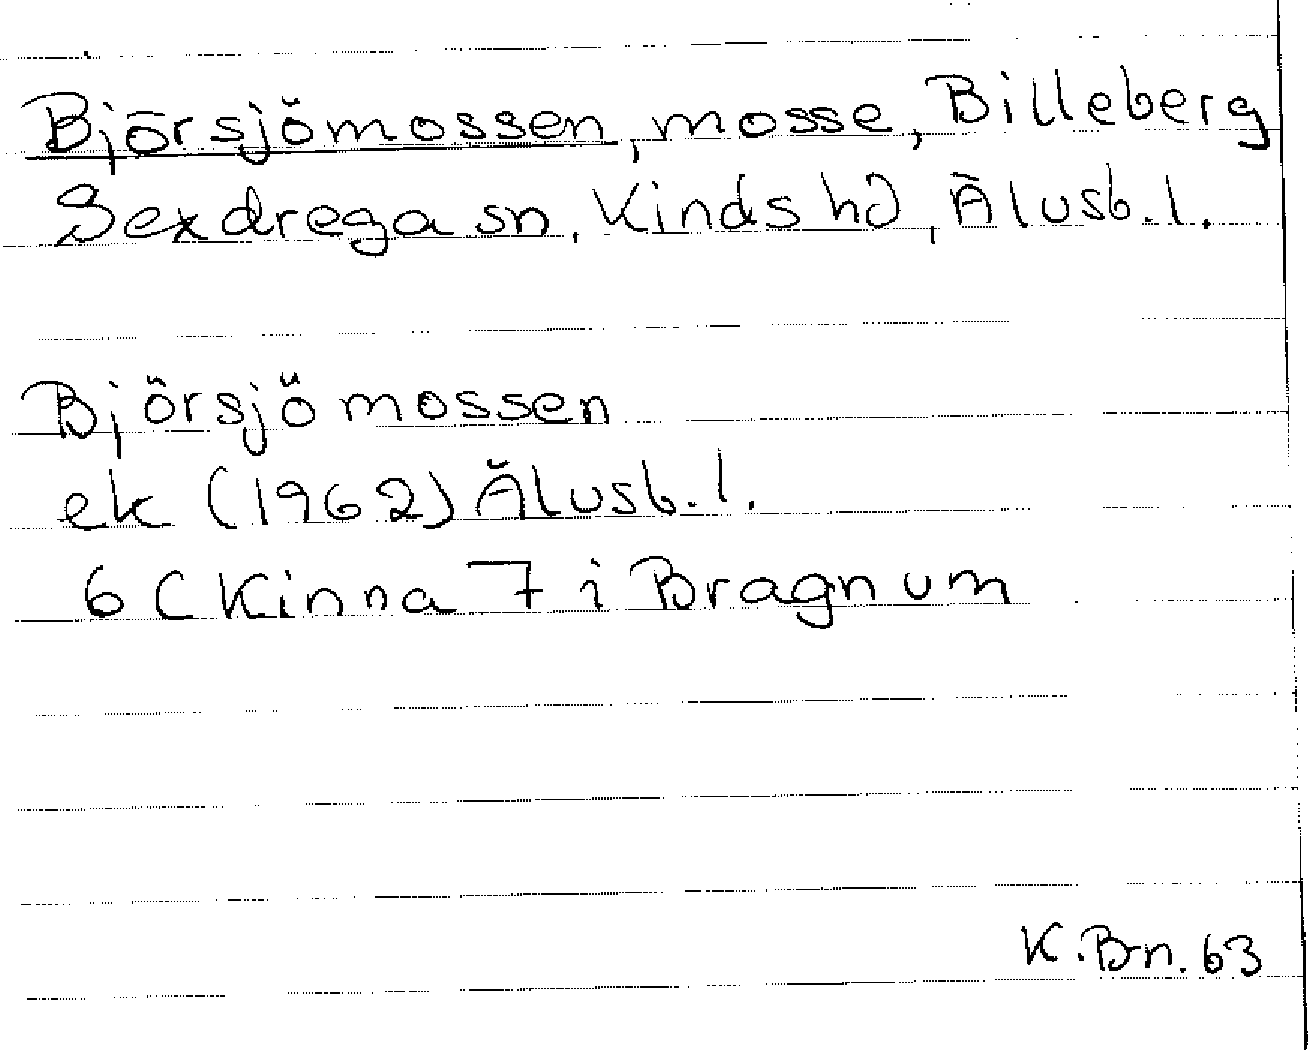 Björsjömossen, mosse, Billeberg
Sexdrega sn, Kinds hd, Älvsb. l.
Björsjömossen
ek (1962) Älvsb. l.
6 C Kinna 7 i Bragnum
K. Bn. 63